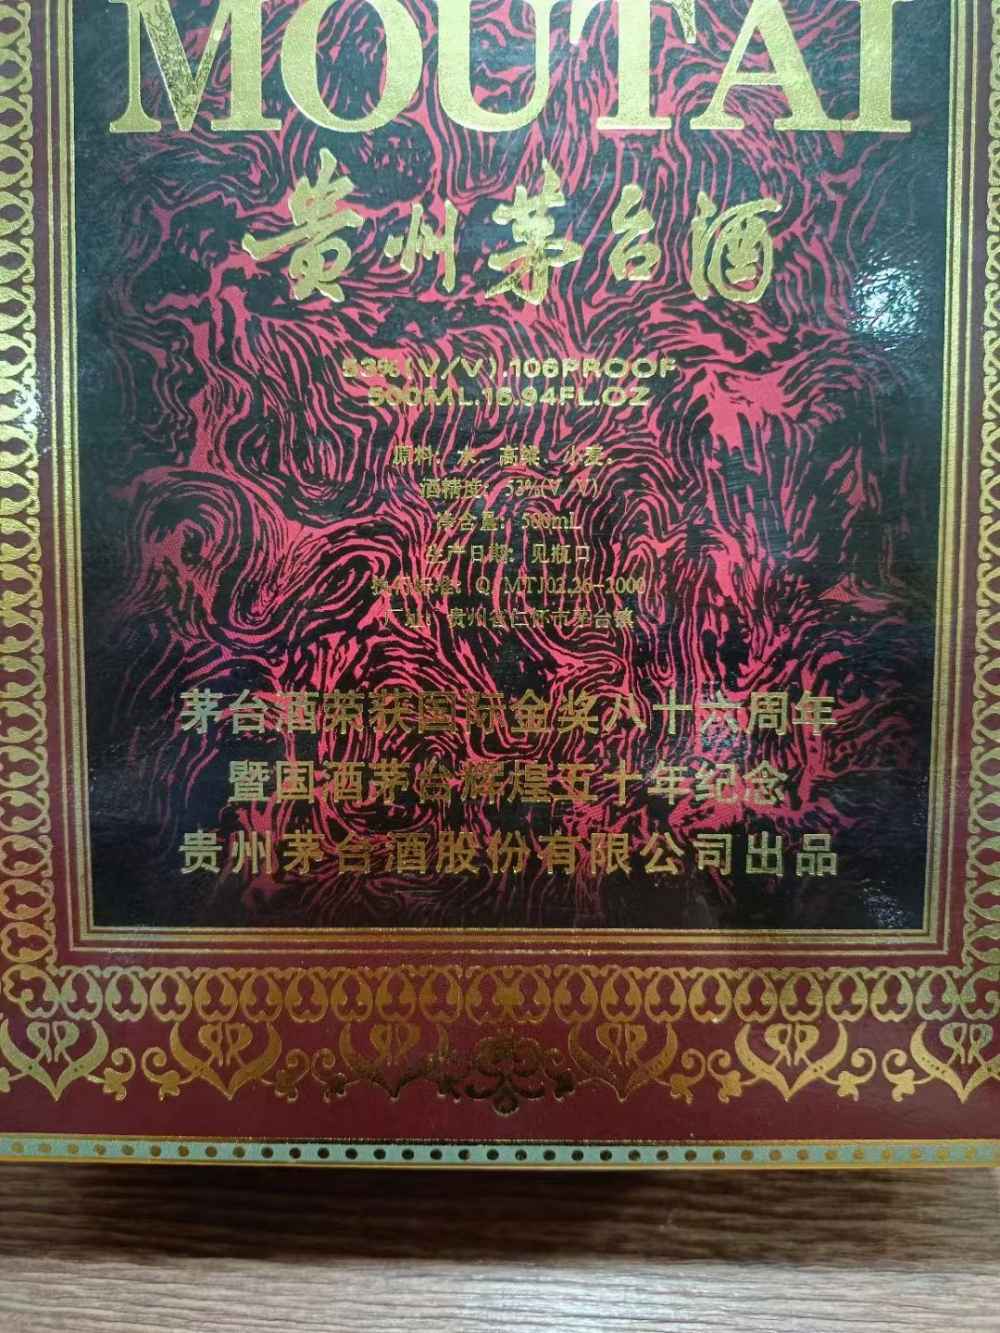 MOUTAI
贵州茅台酒
53%(V/V).106PROOF
500ML.16.94FL.OZ
原料：水、高粱、小麦。
酒精度：53%(V/V)
净含量：500mL
生产日期：见瓶口
执行标准：Q/MTJ02.26-2000
厂址：贵州省仁怀市茅台镇
茅台酒荣获国际金奖八十六周年
暨国酒茅台辉煌五十年纪念
贵州茅台酒股份有限公司出品